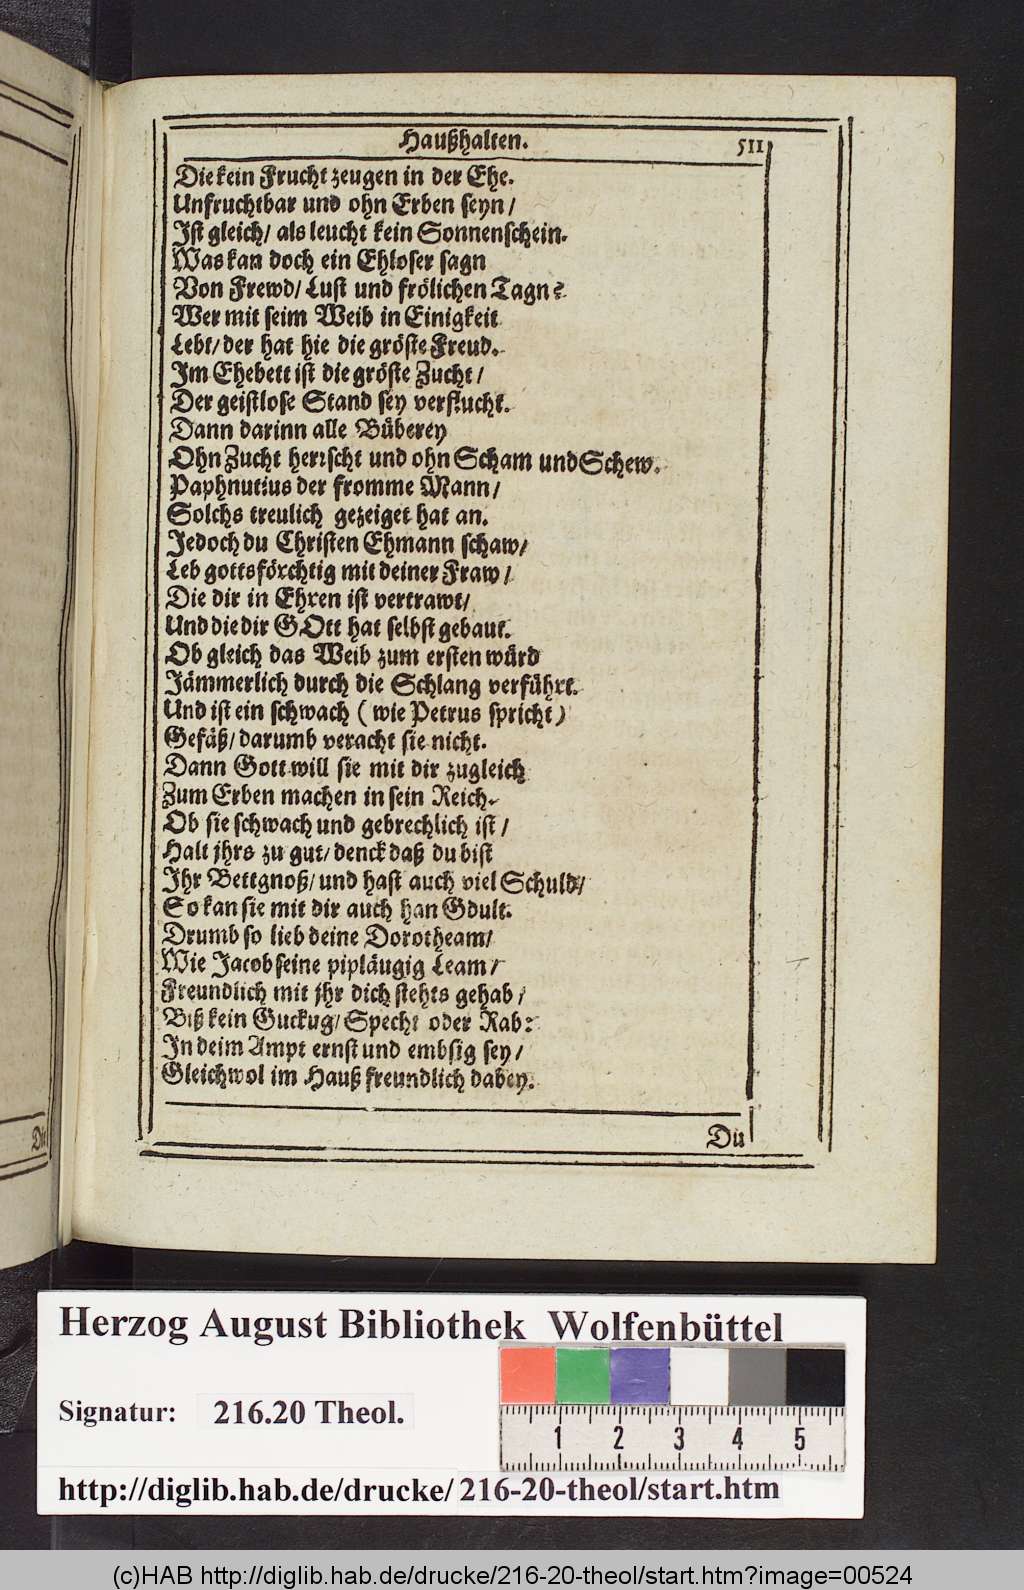 Haußhalten. 511
Die kein Frucht zeugen in der Ehe.
Unfruchtbar und ohn Erben seyn /
Ist gleich / als leucht kein Sonnenschein.
Was kan doch ein Ehloser sagn
Von Frewd / Lust und frölichen Tagn?
Wer mit seim Weib in Einigkeit
Lebt / der hat hie die gröste Freud.
Im Ehebett ist die gröste Zucht /
Der geistlose Stand sey verflucht.
Dann darinn alle Büberey
Ohn Zucht herrscht und ohn Scham und Schew.
Paphnutius der fromme Mann /
Solchs treulich gezeiget hat an.
Jedoch du Christen Ehmann schaw /
Leb gottsförchtig mit deiner Fraw /
Die dir in Ehren ist vertrawt /
Und die dir GOtt hat selbst gebaut.
Ob gleich das Weib zum ersten würd
Jämmerlich durch die Schlang verführt.
Und ist ein schwach ( wie Petrus spricht )
Gefäß / darumb veracht sie nicht.
Dann Gott will sie mit dir zugleich
Zum Erben machen in sein Reich.
Ob sie schwach und gebrechlich ist /
Halt jhrs zu gut / denck daß du bist
Ihr Bettgnoß / und hast auch viel Schuld /
So kan sie mit dir auch han Gdult.
Drumb so lieb deine Dorotheam /
Wie Jacob seine pipläugig Leam /
Freundlich mit jhr dich stehts gehab /
Biß kein Guckug / Specht oder Rab:
In deim Ampt ernst und embsig sey /
Gleichwol im Hauß freundlich dabey.
Du
Herzog August Bibliothek Wolfenbüttel
Signatur: 216.20 Theol.
1 2 3 4 5
http://diglib.hab.de/drucke/216-20-theol/start.htm
(c)HAB http://diglib.hab.de/drucke/216-20-theol/start.htm?image=00524